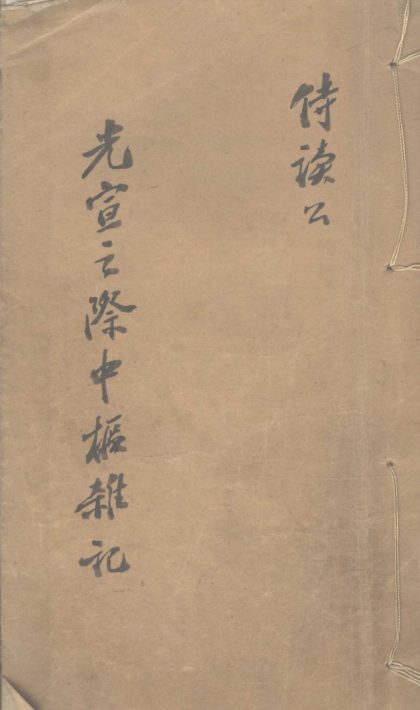 侍读公
光宣之際中樞雜记